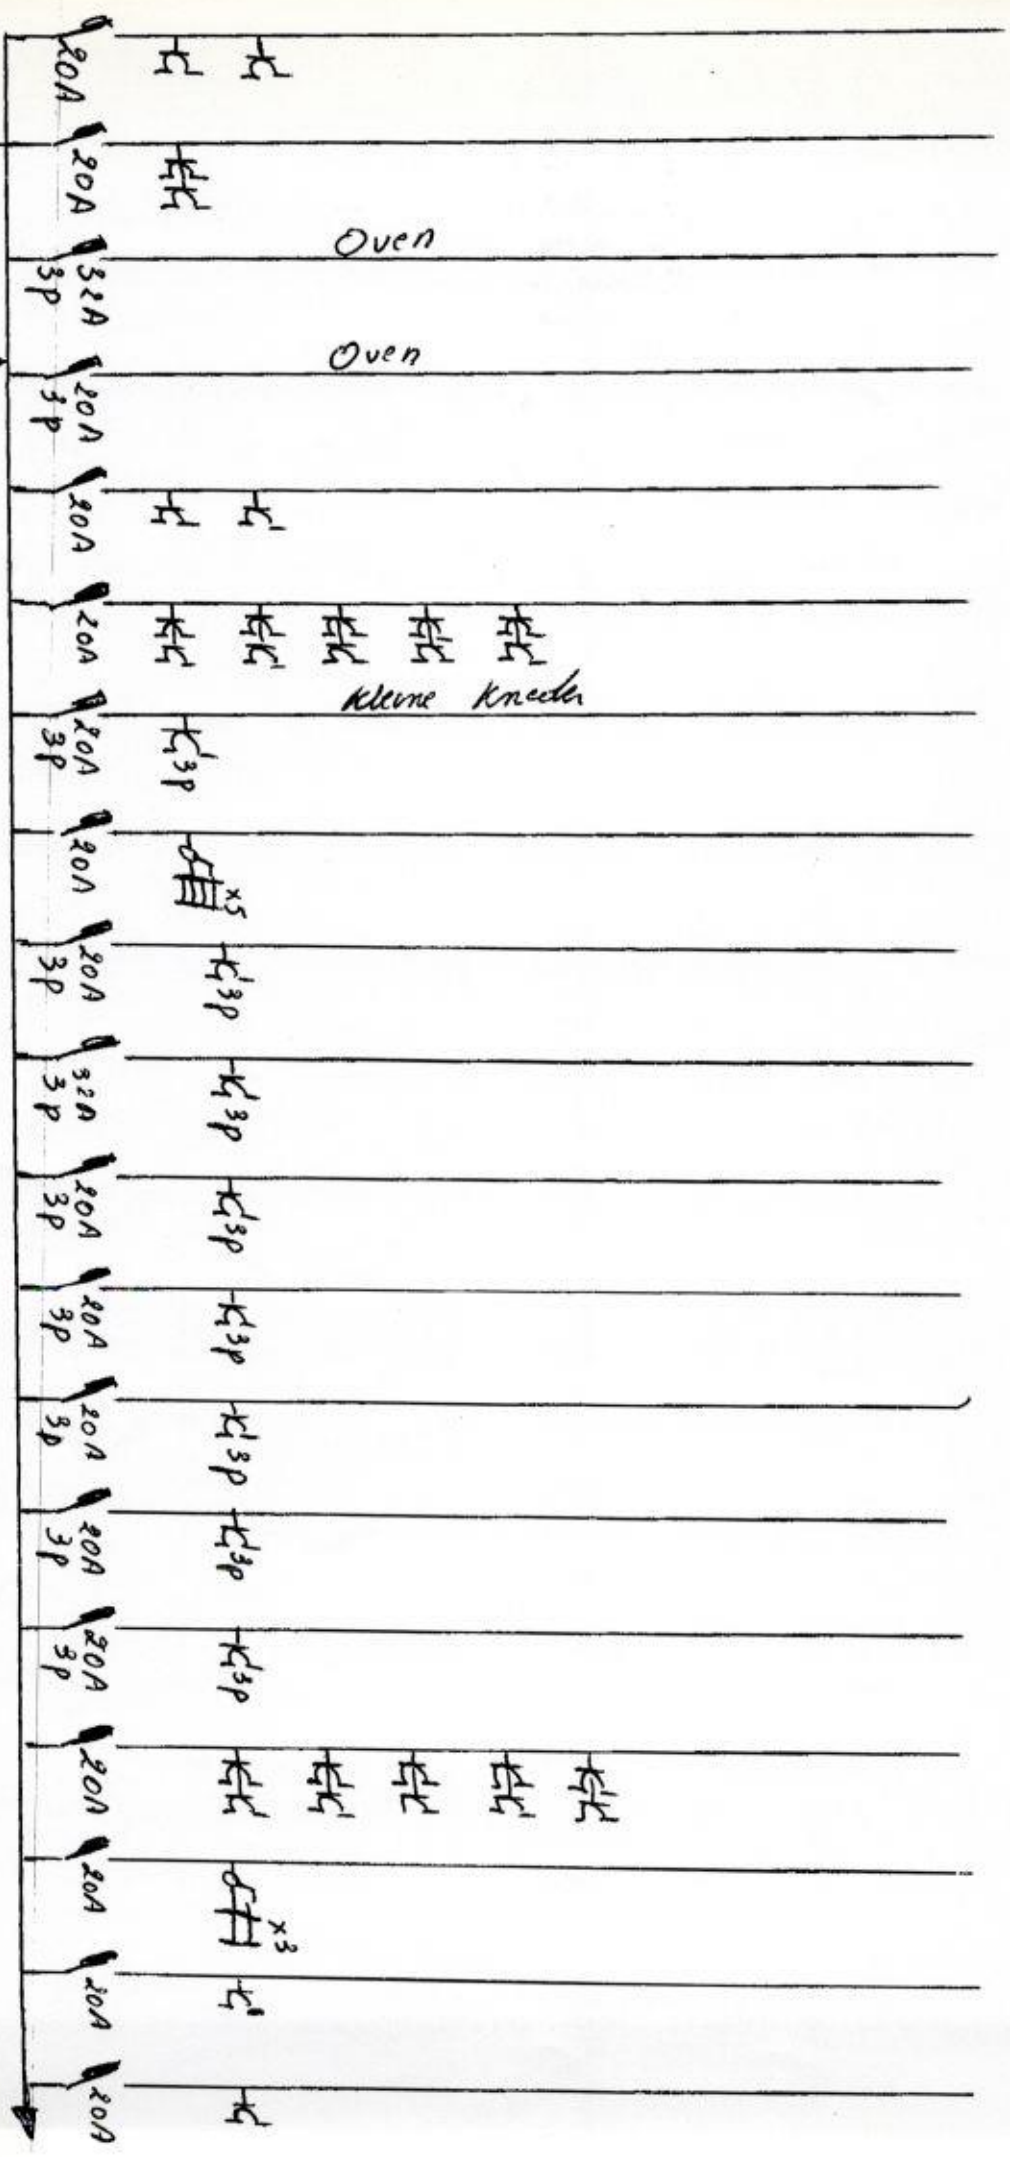 20A
20A
Oven
32A
3P
Oven
20A
3P
20A
20A
Kleine Kneeder
20A
3P
3P
20A
x5
20A
3P
3P
32A
3P
3P
20A
3P
3P
20A
3P
3P
20A
3P
3P
20A
3P
3P
20A
3P
3P
20A
20A
x3
20A
20A